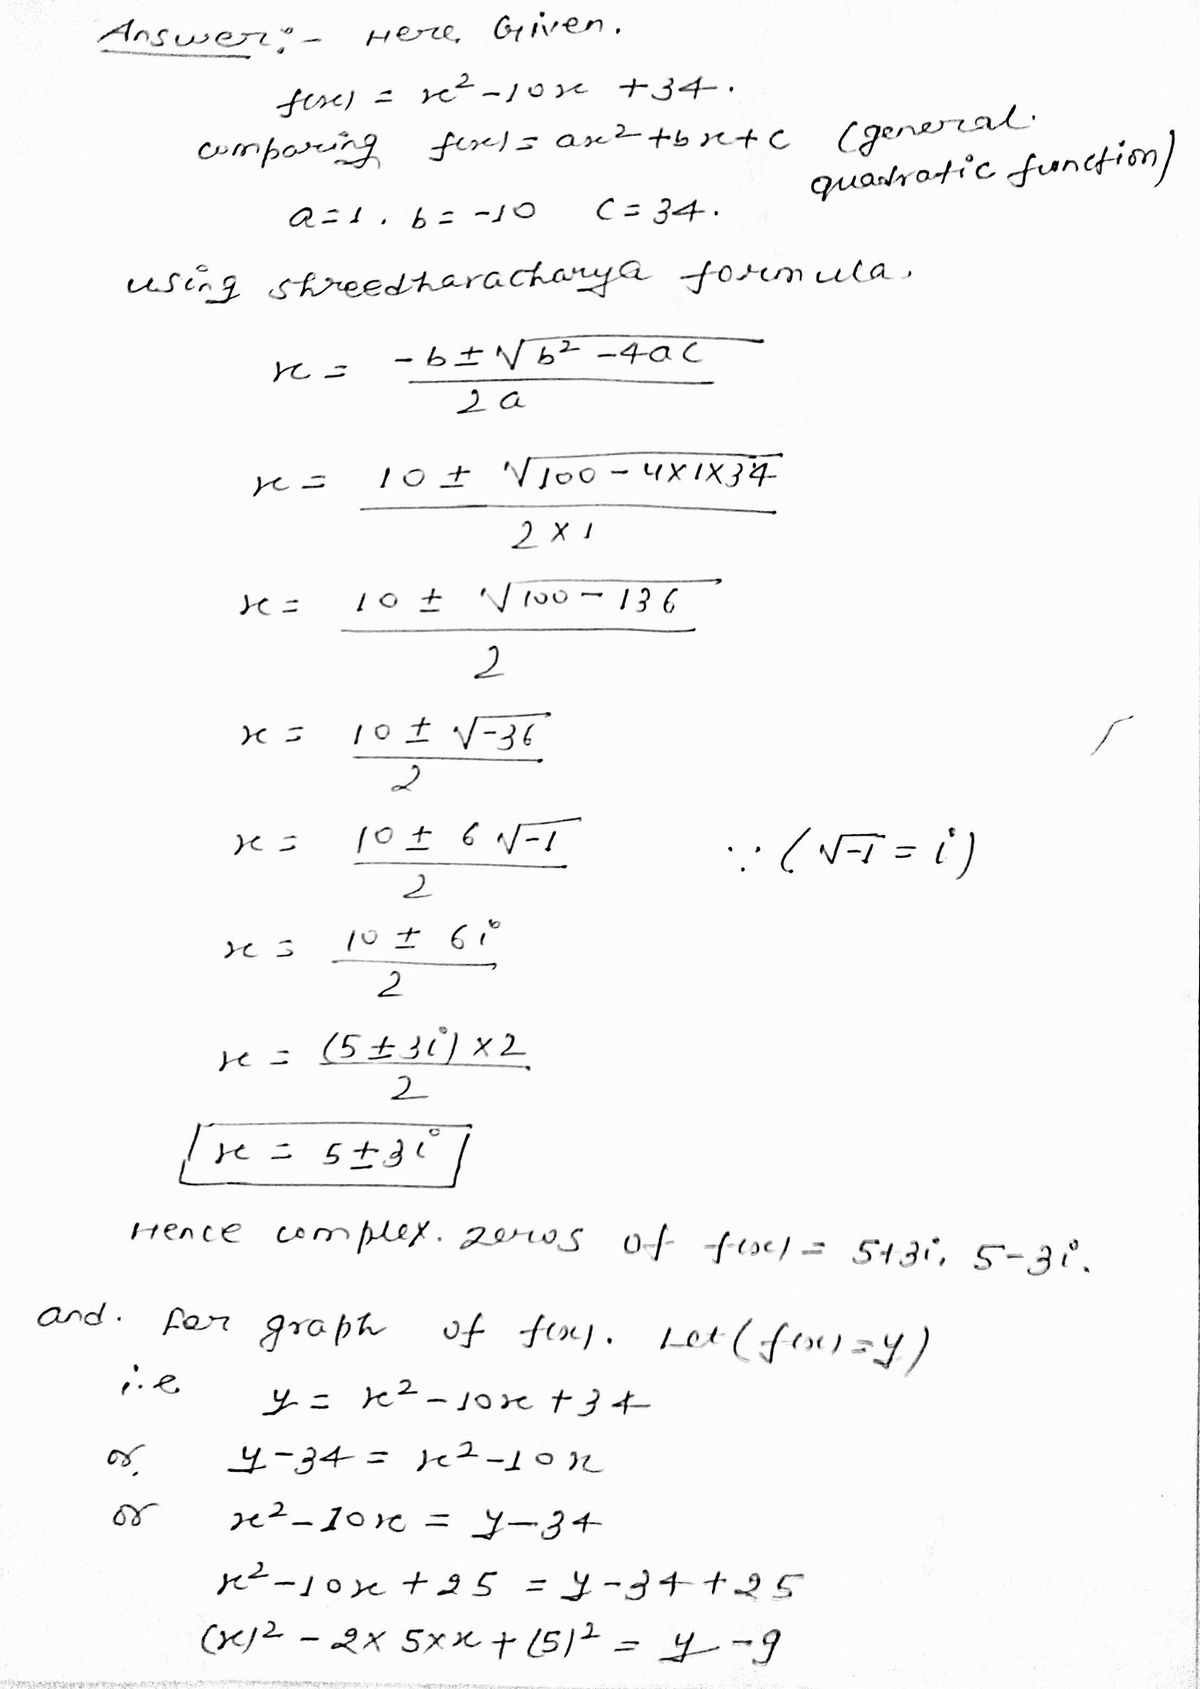 Answer:- Here, Given.
f(x) = x² - 10x + 34.
comparing f(x) = ax² + bx + c (general quadratic function)
a = 1, b = -10 c = 34.
using shreedharacharya formula.
x = (-b ± √(b² - 4ac)) / 2a
x = (10 ± √(100 - 4×1×34)) / (2×1)
x = (10 ± √(100 - 136)) / 2
x = (10 ± √-36) / 2
x = (10 ± 6√-1) / 2 ∵ (√-1 = i)
x = (10 ± 6i) / 2
x = ((5 ± 3i) × 2) / 2
x = 5 ± 3i
Hence complex. zeros of f(x) = 5+3i, 5-3i.
and. for graph of f(x). Let (f(x) = y)
i.e y = x² - 10x + 34
or, y - 34 = x² - 10x
or x² - 10x = y - 34
x² - 10x + 25 = y - 34 + 25
(x)² - 2 × 5 × x + (5)² = y - 9